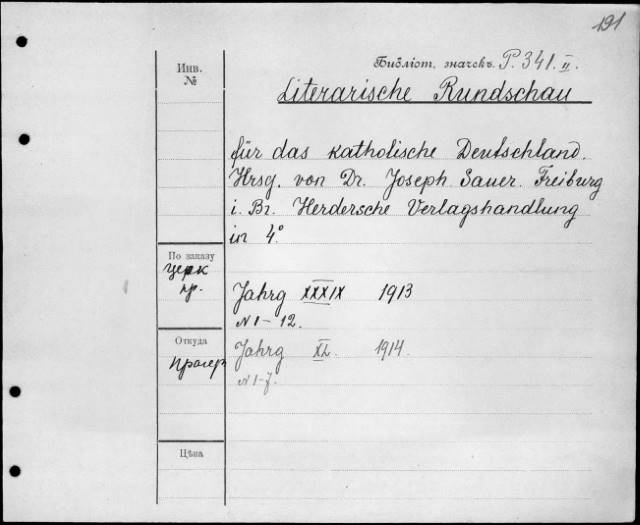 191
Библіот. значекъ P. 341. II.
Инв.
№
Literarische Rundschau
für das katholische Deutschland.
Hrsg. von Dr. Joseph Sauer. Freiburg
i. Br. Herdersche Verlagshandlung
in 4°
По заказу
Церк
пр.
Jahrg XXXIX 1913
N 1-12.
Откуда
Jahrg XL. 1914.
N 1-7.
Цѣна